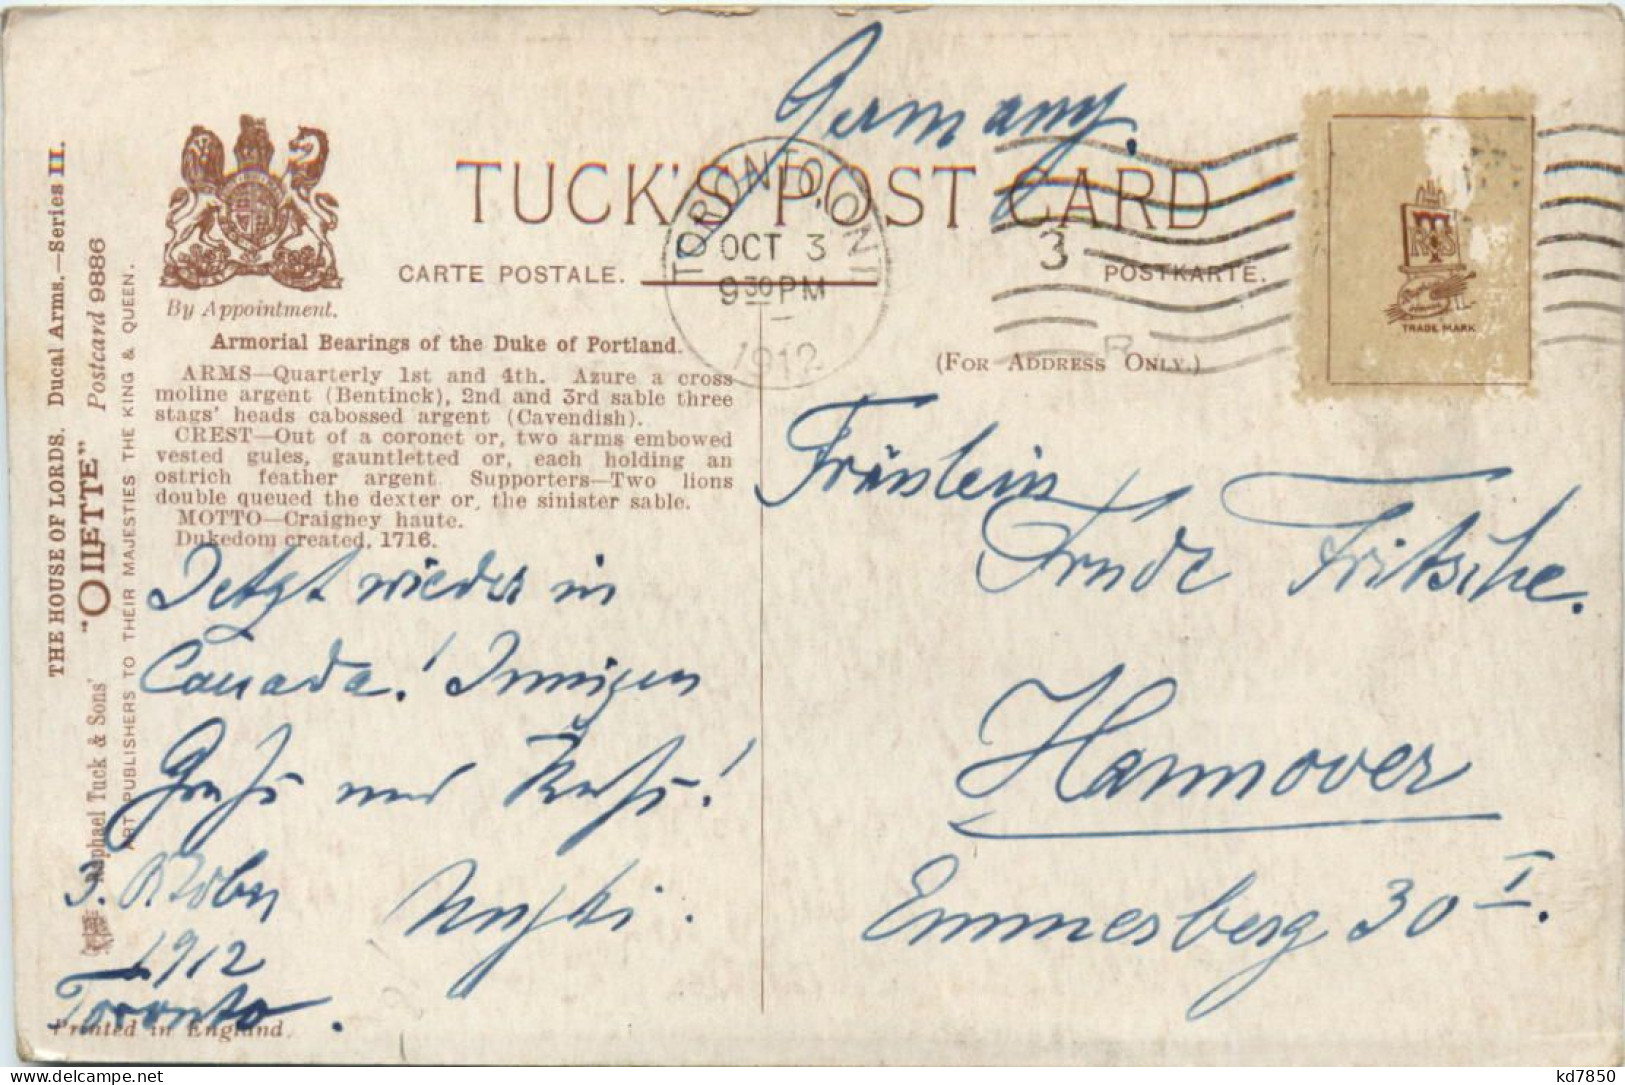 Germany.
TUCK'S POST CARD
CARTE POSTALE.
POSTKARTE.
TORONTO, ONT
OCT 3
9 30 PM
1912
3
By Appointment.
(For Address Only.)
TRADE MARK
THE HOUSE OF LORDS. Ducal Arms.—Series II.
Raphael Tuck & Sons' "OILETTE" Postcard 9886
ART PUBLISHERS TO THEIR MAJESTIES THE KING & QUEEN.
Armorial Bearings of the Duke of Portland.
ARMS—Quarterly 1st and 4th. Azure a cross
moline argent (Bentinck), 2nd and 3rd sable three
stags' heads cabossed argent (Cavendish).
CREST—Out of a coronet or, two arms embowed
vested gules, gauntletted or, each holding an
ostrich feather argent. Supporters—Two lions
double queued the dexter or, the sinister sable.
MOTTO—Craigney haute.
Dukedom created, 1716.
Jetzt wieder in
Canada! Innigen
Gruß und Kuß!
3. Oktober
1912
Toronto.
Printed in England.
Fräulein
Trude Fritsche.
Hannover
Emmesberg 30 I.
kd7850